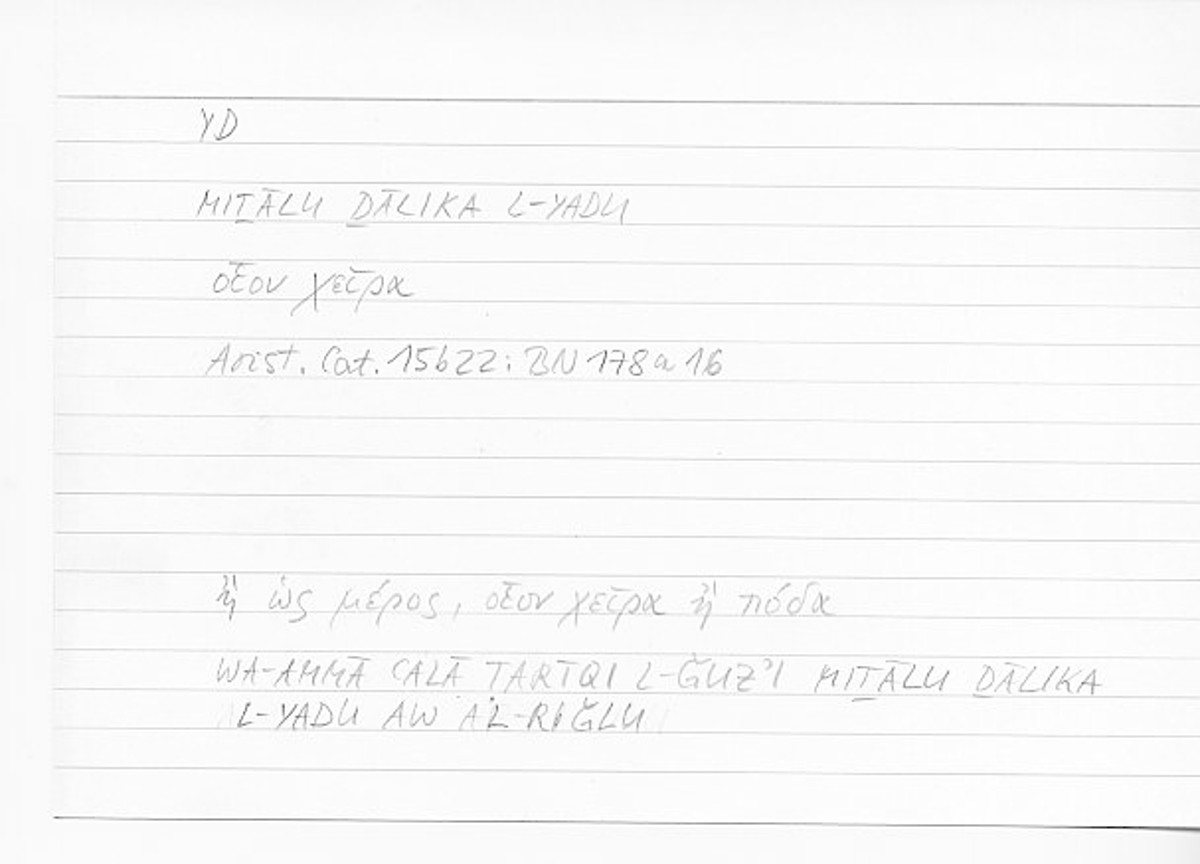 YD
MIṮĀLU ḎĀLIKA L-YADU
οἷον χεῖρα
Arist. Cat. 15b22: BN 178a16
ἢ ὡς μέρος, οἷον χεῖρα ἢ πόδα
WA-AMMĀ CALĀ ṬARĪQI L-ǦUZʾI MIṮĀLU ḎĀLIKA
L-YADU AW A'L-RIǦLU